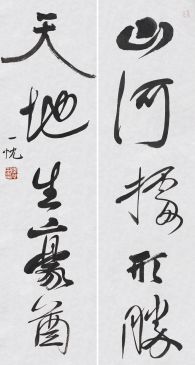 山河據形勝
天地生豪酋
一忱